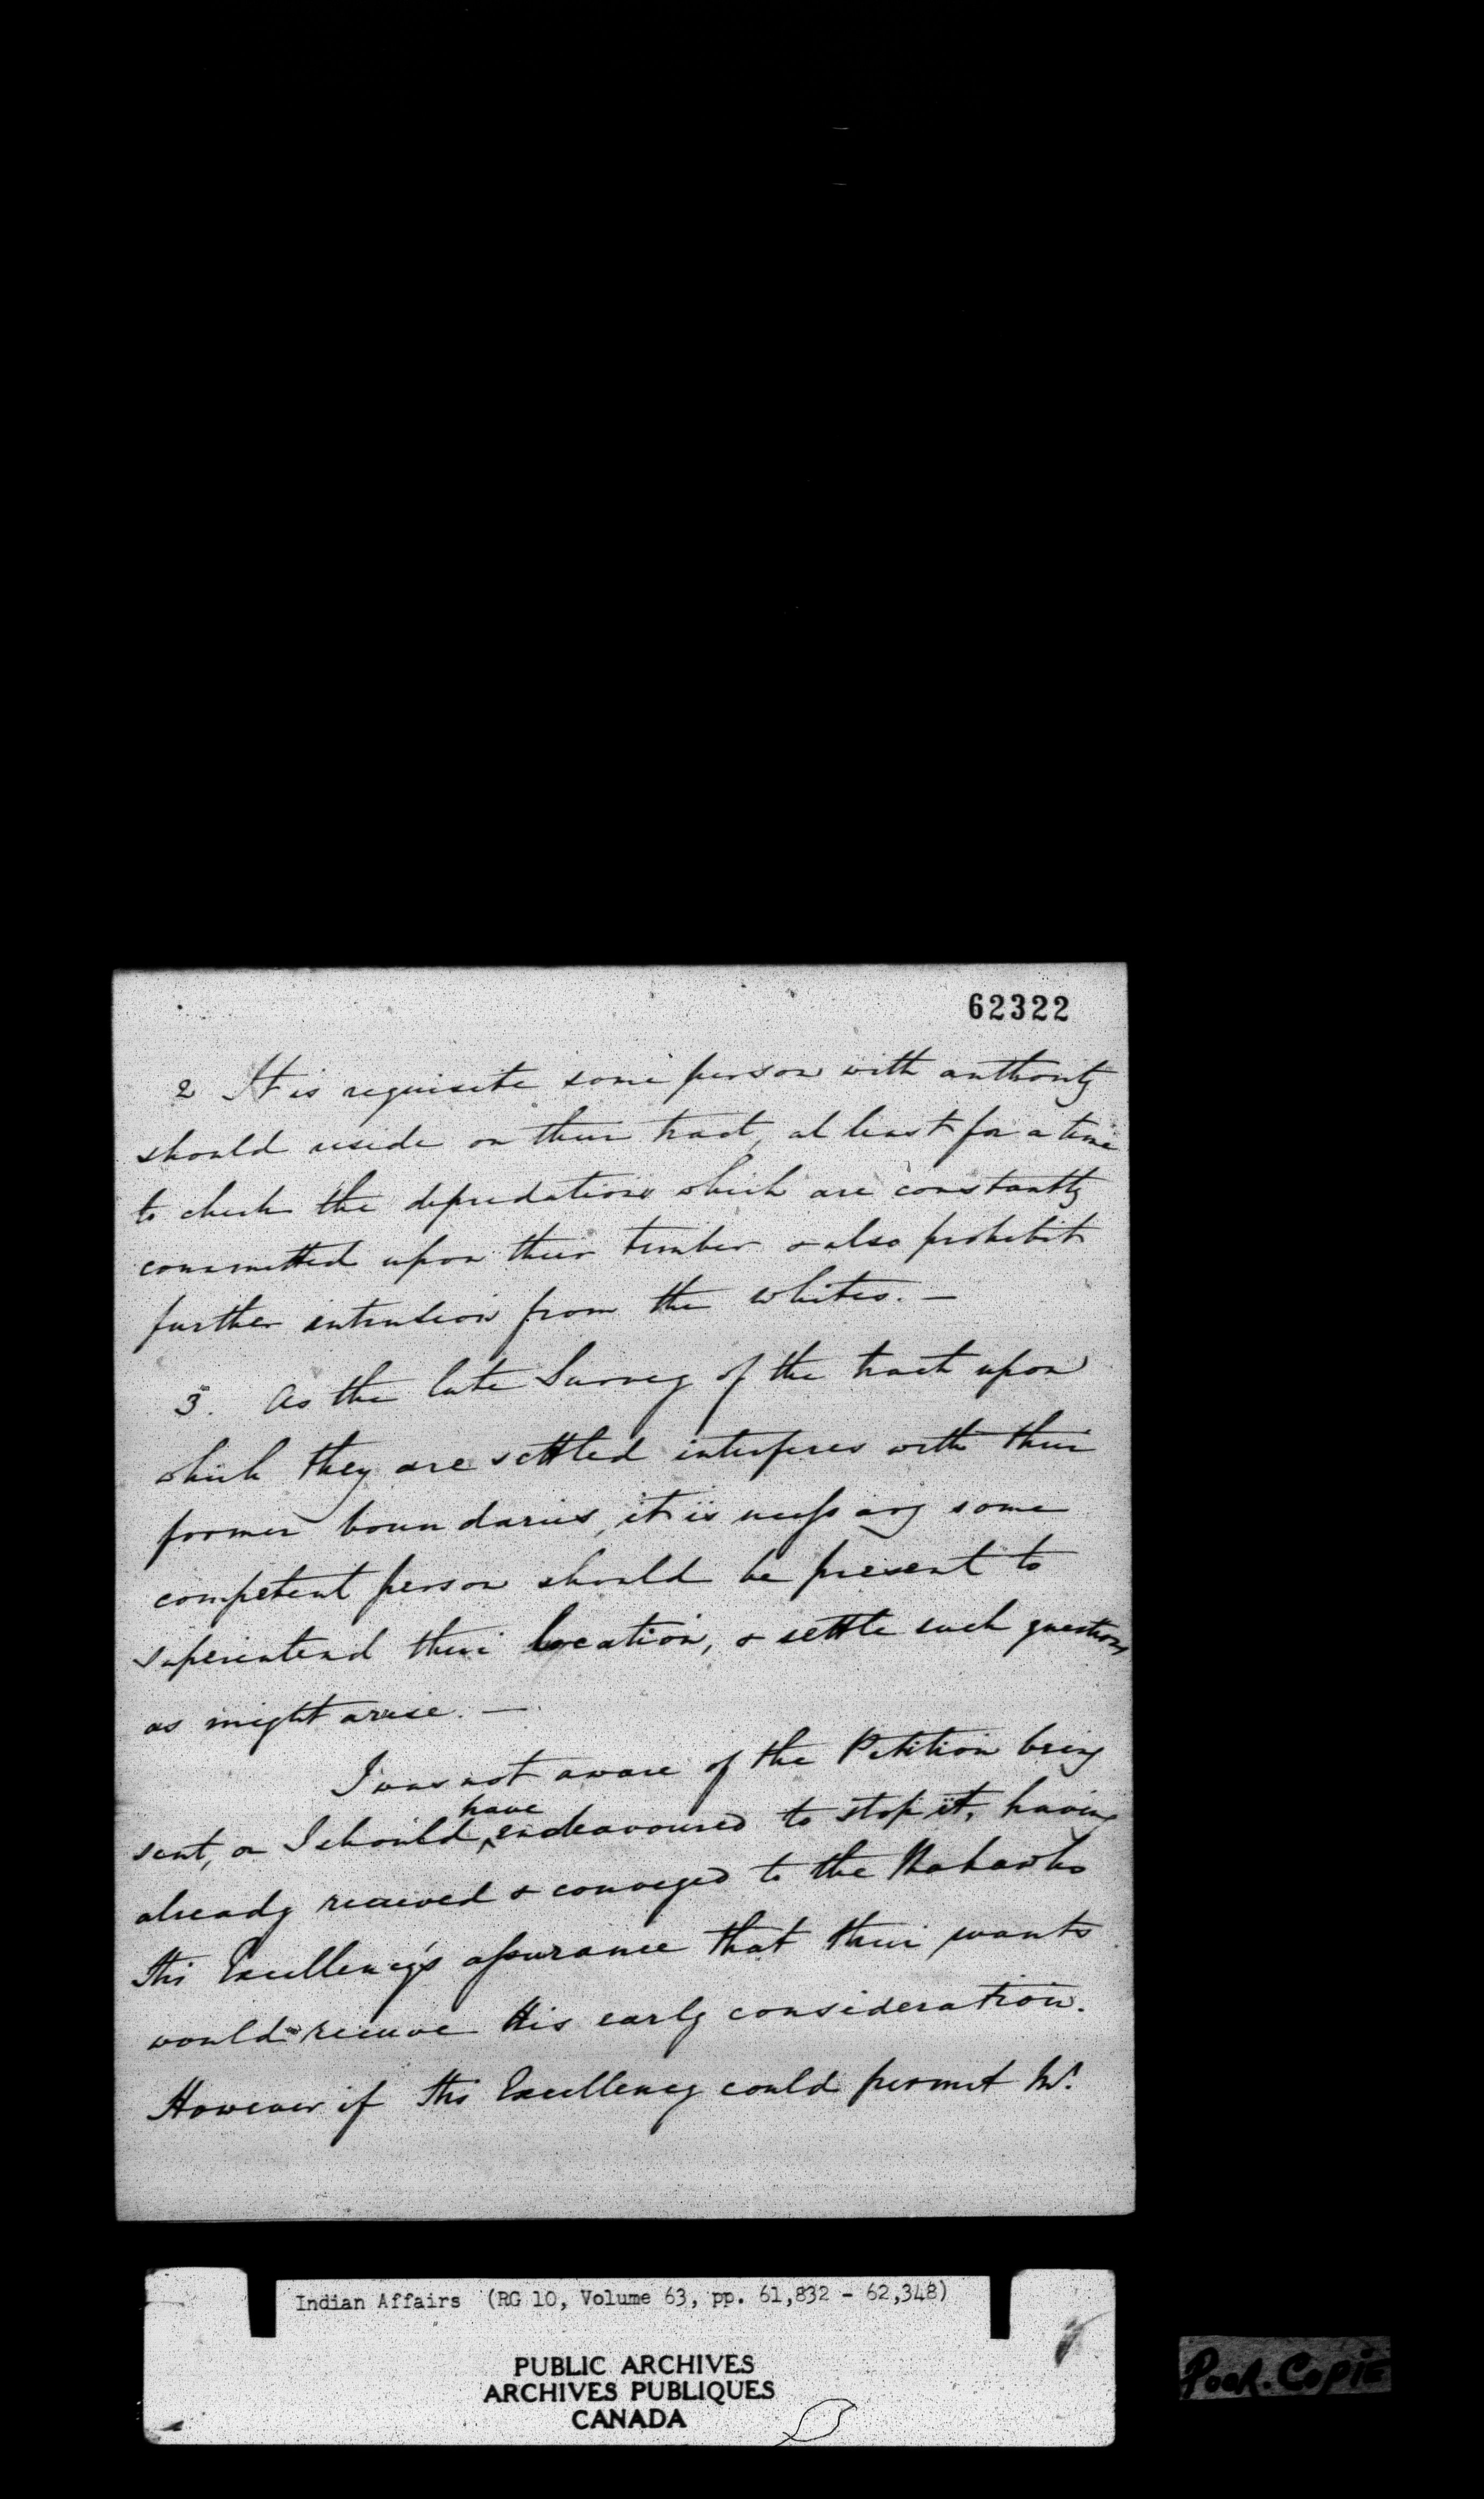 62322
2 It is requisite some person with authority
should reside on their tract, at least for a time
to check the depredations which are constantly
committed upon their timber & also prohibit
further intrusion from the whites. —
3. As the late Survey of the tract upon
which they are settled interferes with their
former boundaries, it is necessary some
competent person should be present to
superintend their location, & settle such questions
as might arise. —
I was not aware of the Petition being
have
sent, or I should ^ endeavoured to stop it, having
already received & conveyed to the Mohawks
His Excellency's assurance that their wants
would receive His early consideration.
However if His Excellency could permit Mr.
Indian Affairs (RG 10, Volume 63, pp. 61,832 - 62,348)
PUBLIC ARCHIVES
ARCHIVES PUBLIQUES
CANADA
POOR. COPIE